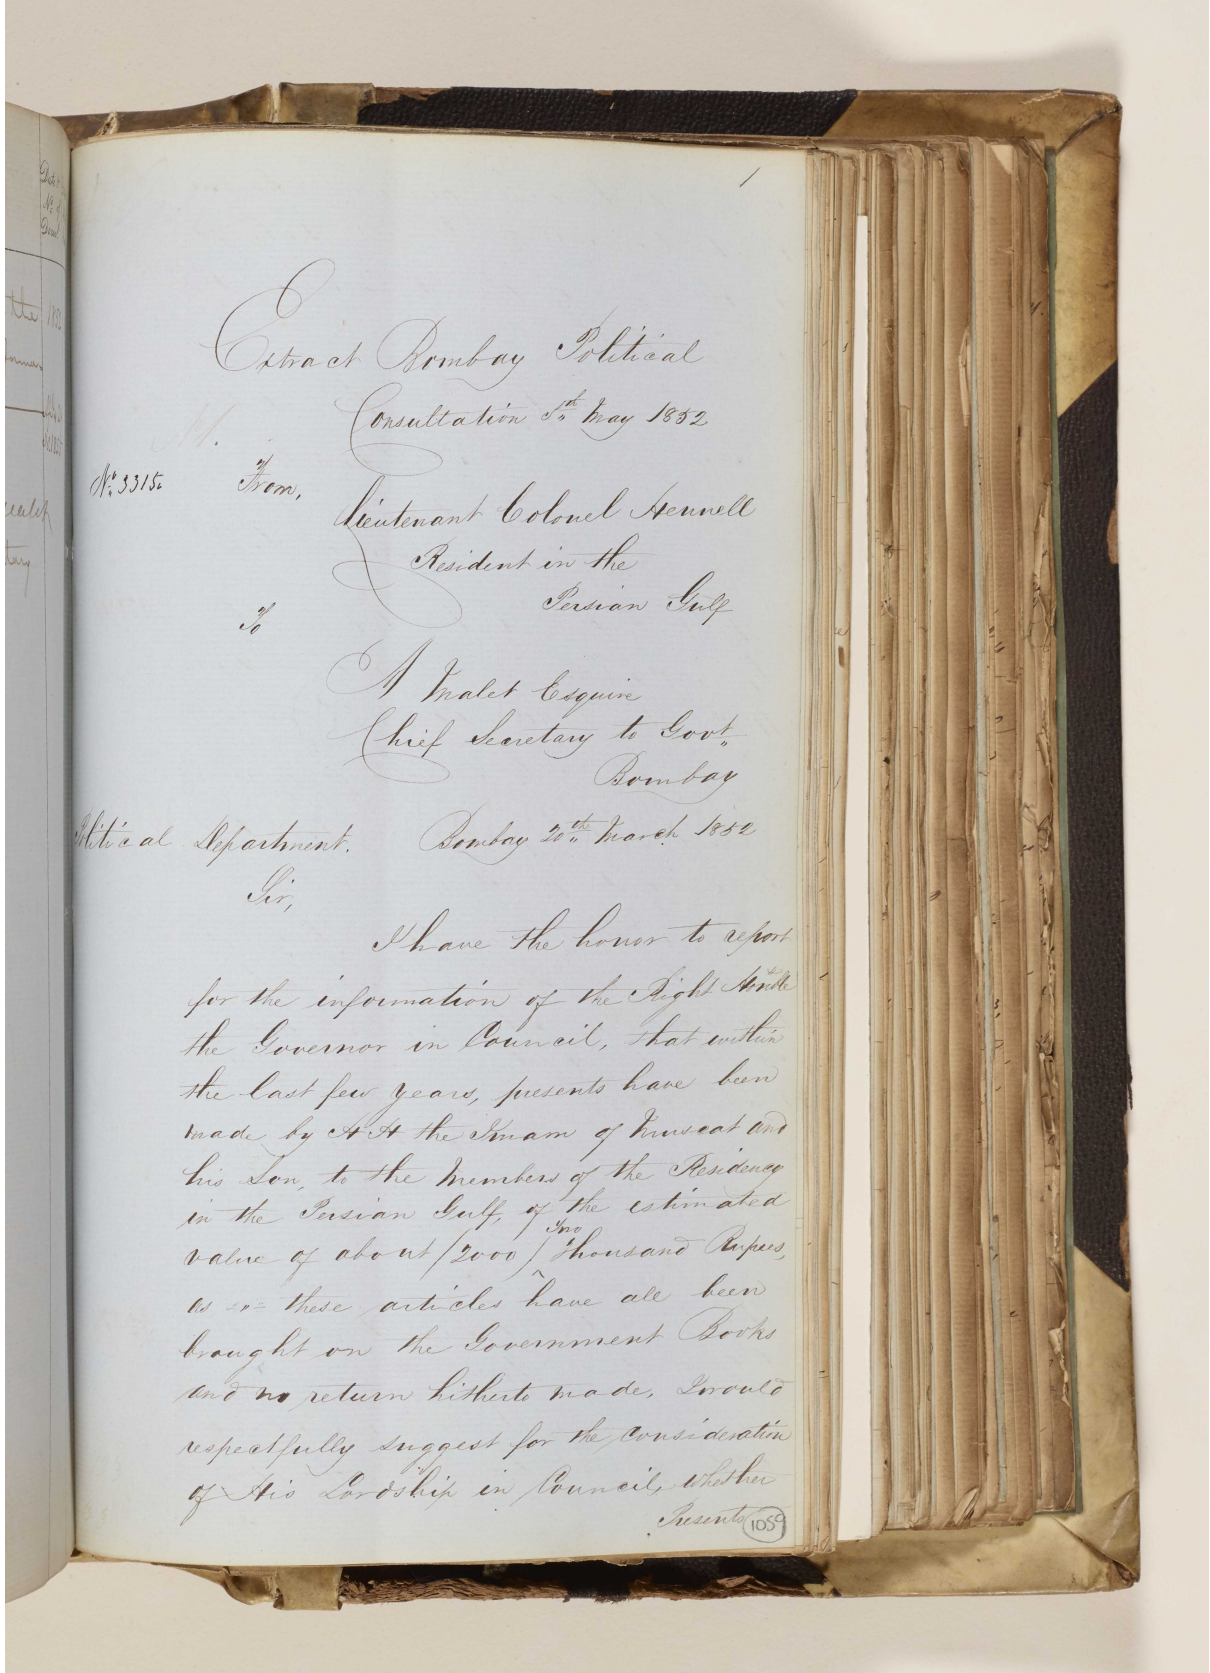 1
Extract Bombay Political
Consultation 5th May 1852
No. 3315.
From,
Lieutenant Colonel Hennell
Resident in the
Persian Gulf
To
A Malet Esquire
Chief Secretary to Govt.
Bombay
Political Department. Bombay 20th March 1852
Sir,
I have the honor to report
for the information of the Right Honble
the Governor in Council, that within
the last few years, presents have been
made by H H the Imam of Muscat and
his Son, to the Members of the Residency
in the Persian Gulf, of the estimated
value of about (2000) Two Thousand Rupees,
as these articles have all been
brought on the Government Books
and no return hitherto made. I would
respectfully suggest for the consideration
of His Lordship in Council, whether
Presents
1059